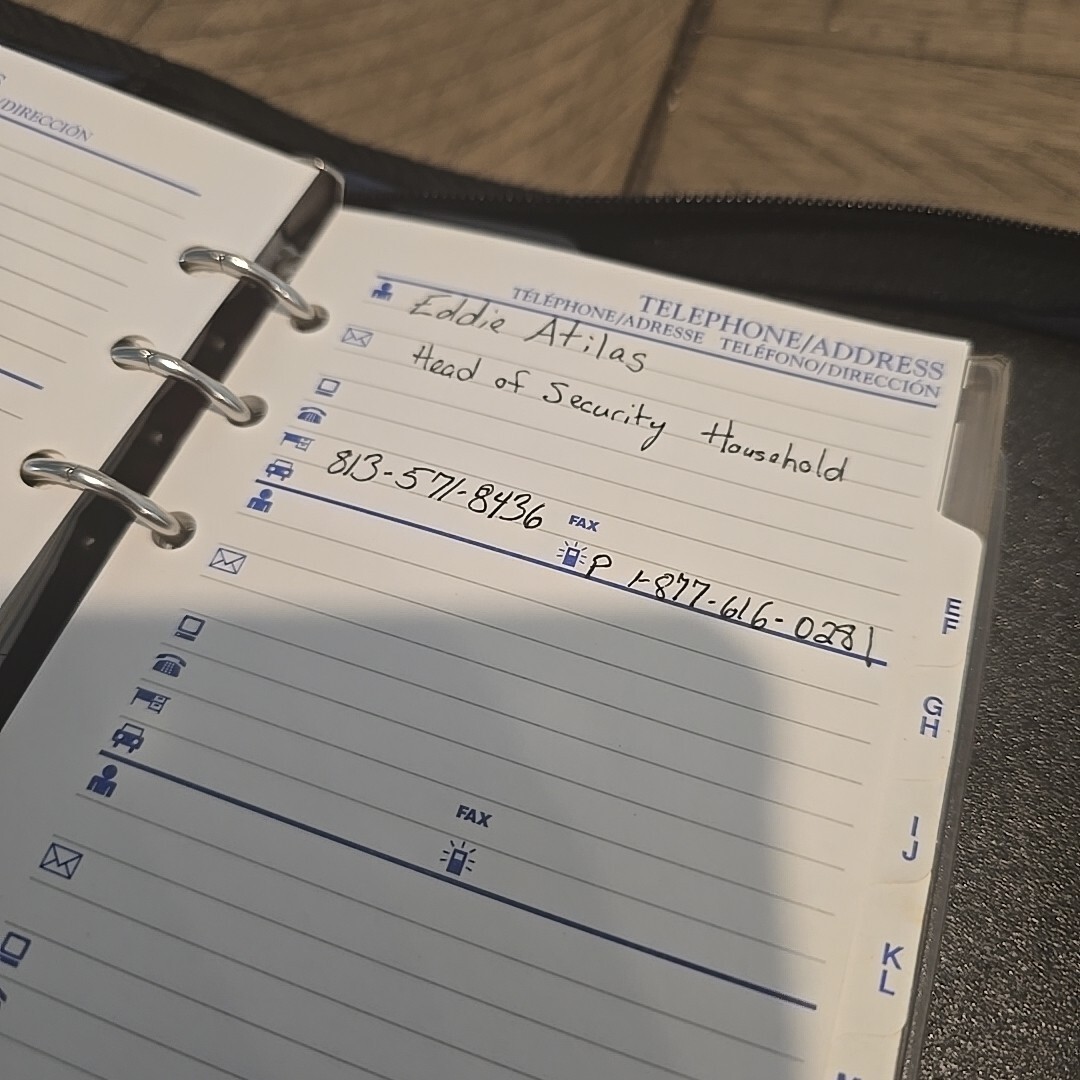 /DIRECCIÓN
TELEPHONE/ADDRESS
TÉLÉPHONE/ADRESSE TELÉFONO/DIRECCIÓN
Eddie Atilas
Head of Security Household
813-571-8436
FAX
P 1-877-616-0281
FAX
E
F
G
H
I
J
K
L